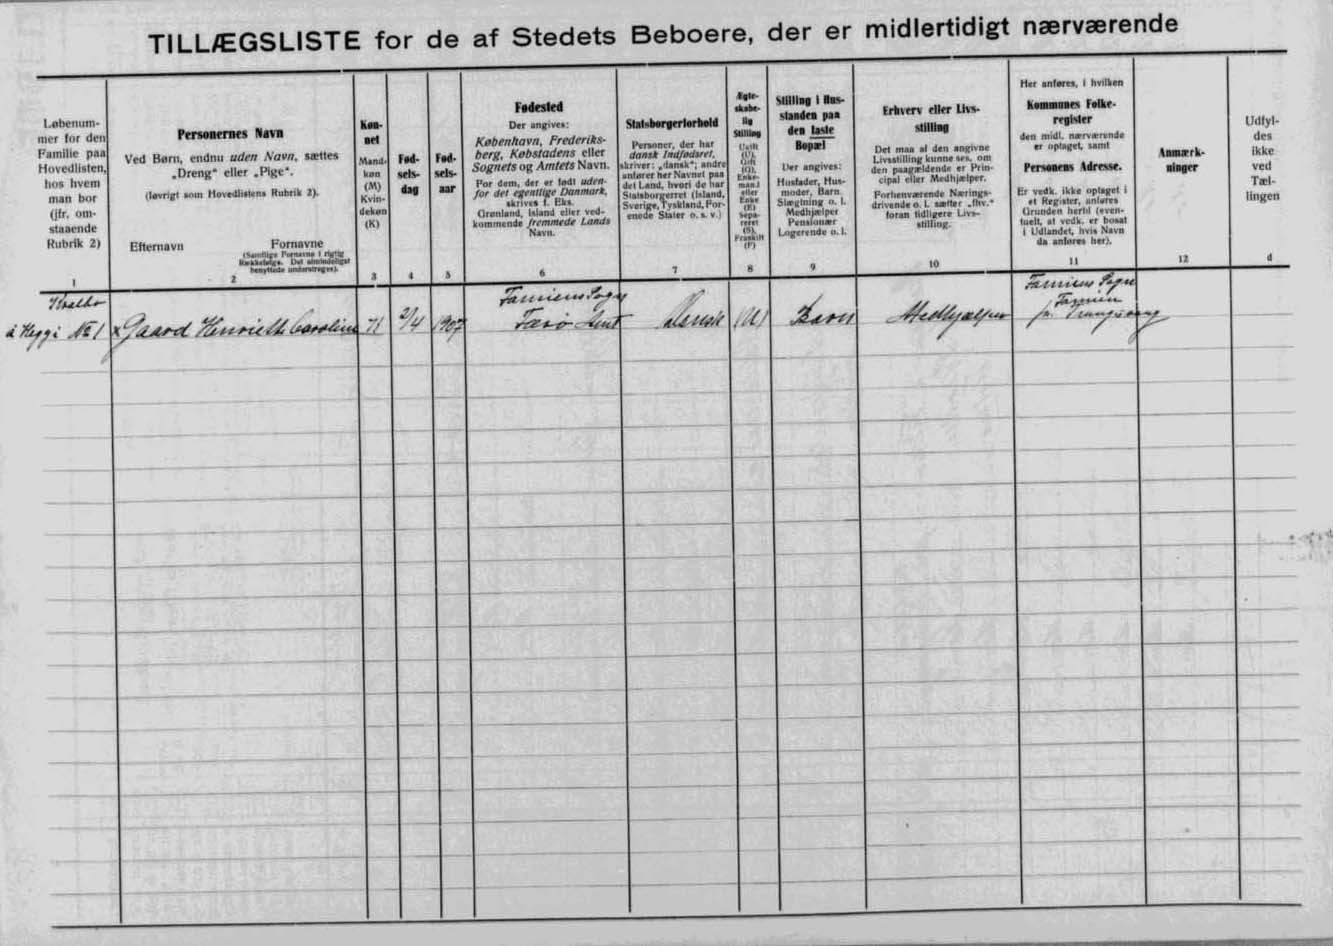 TILLÆGSLISTE for de af Stedets Beboere, der er midlertidigt nærværende
Løbenum-
mer for den
Familie paa
Hovedlisten,
hos hvem
man bor
(jfr. om-
staaende
Rubrik 2)
1
Personernes Navn
Ved Børn, endnu uden Navn, sættes
„Dreng“ eller „Pige“.
(Iøvrigt som Hovedlistens Rubrik 2).
Efternavn
Fornavne
(Samtlige Fornavne i rigtig
Rækkefølge. Det almindeligst
benyttede understreges).
2
Køn-
net
Mand-
køn
(M)
Kvin-
dekøn
(K)
3
Fød-
sels-
dag
4
Fød-
sels-
aar
5
Fødested
Der angives:
København, Frederiks-
berg, Købstadens eller
Sognets og Amtets Navn.
For dem, der er født uden-
for det egentlige Danmark,
skrives f. Eks.
Grønland, Island eller ved-
kommende fremmede Lands
Navn.
6
Statsborgerforhold
Personer, der har
dansk Indfødsret,
skriver: „dansk“; andre
anfører her Navnet paa
det Land, hvori de har
Statsborgerret (Island,
Sverige, Tyskland, For-
enede Stater o. s. v.)
7
Ægte-
skabe-
lig
Stilling
Ugift
(U),
Gift
(G),
Enke-
mand
eller
Enke
(E)
Sepa-
reret
(S),
Fraskilt
(F)
8
Stilling i Hus-
standen paa
den faste
Bopæl
Der angives:
Husfader, Hus-
moder, Barn,
Slægtning o. l.
Medhjælper
Pensionær
Logerende o. l.
9
Erhverv eller Livs-
stilling
Det maa af den angivne
Livsstilling kunne ses, om
den paagældende er Prin-
cipal eller Medhjælper.
Forhenværende Nærings-
drivende o. l. sætter „fhv.“
foran tidligere Livs-
stilling.
10
Her anføres, i hvilken
Kommunes Folke-
register
den midl. nærværende
er optaget, samt
Personens Adresse.
Er vedk. ikke optaget i
et Register, anføres
Grunden hertil (even-
tuelt, at vedk. er bosat
i Udlandet, hvis Navn
da anføres her).
11
Anmærk-
ninger
12
Udfyl-
des
ikke
ved
Tæl-
lingen
d
Hvalbø
Famiens Sogn
Famiens Sogn
Famien
á Heygi № 1 x Gaard Henrieth Caroline K 2/4 1907 Færø Amt dansk (U) Barn Medhjælper pr. Trangisvaag